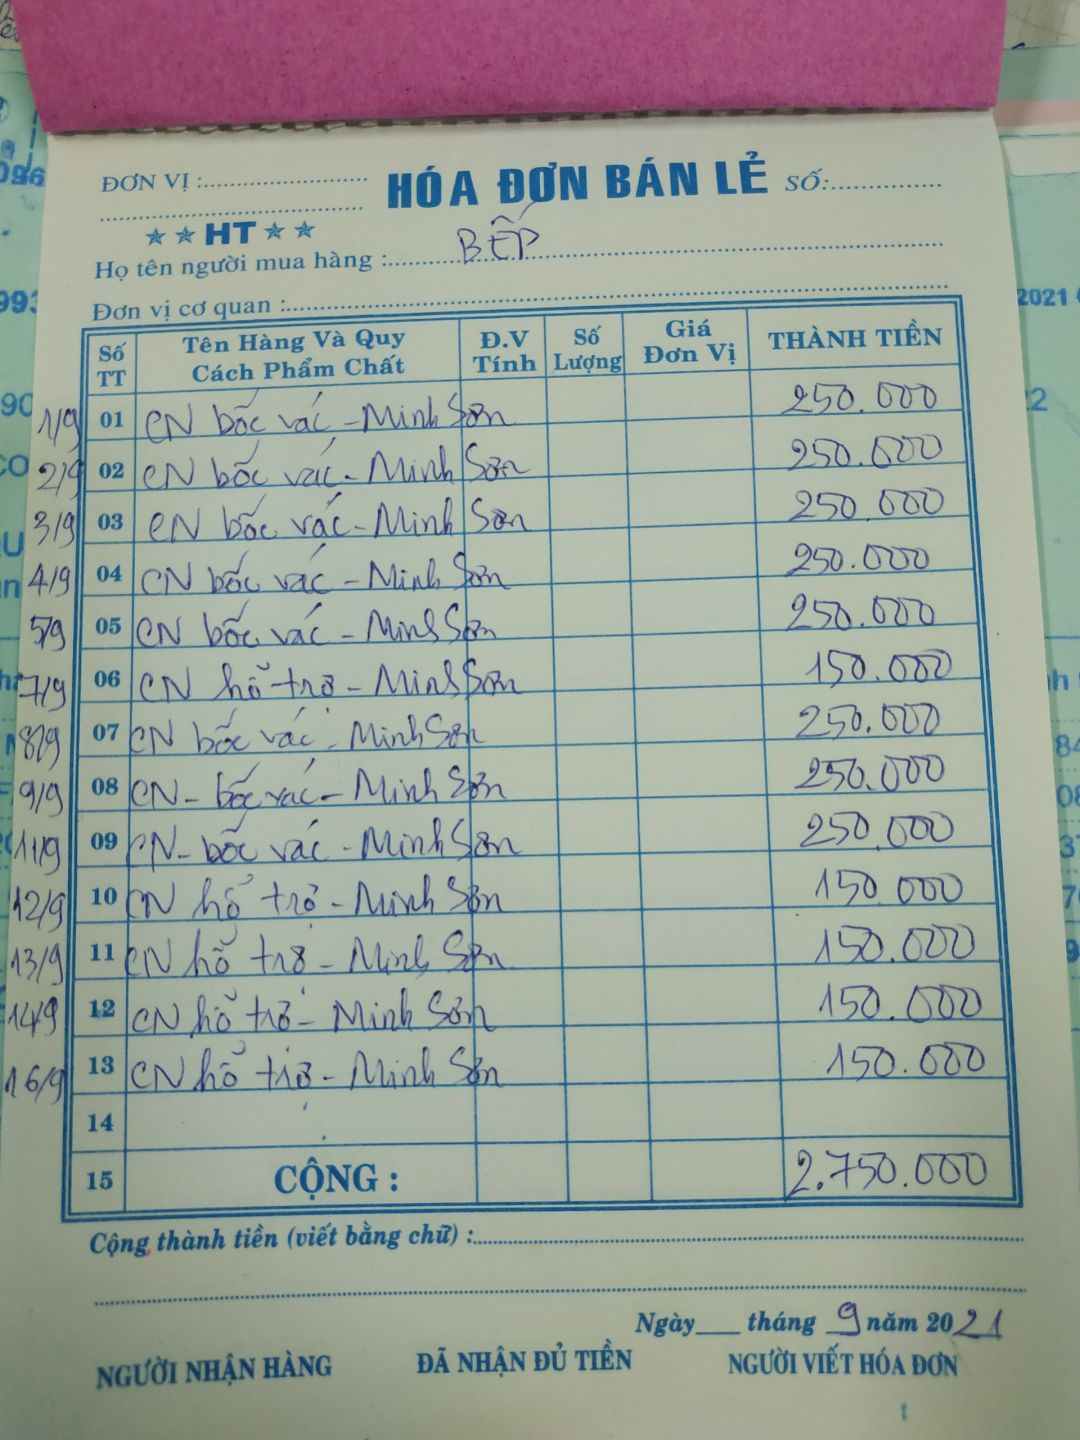 ĐƠN VỊ :
HÓA ĐƠN BÁN LẺ
SỐ:
HT
Họ tên người mua hàng : BẾP
Đơn vị cơ quan :
Số TT Tên Hàng Và Quy Cách Phẩm Chất Đ.V Tính Số Lượng Giá Đơn Vị THÀNH TIỀN
1/9 01 CN bốc vác - Minh Sơn 250.000
2/9 02 CN bốc vác - Minh Sơn 250.000
3/9 03 CN bốc vác - Minh Sơn 250.000
4/9 04 CN bốc vác - Minh Sơn 250.000
5/9 05 CN bốc vác - Minh Sơn 250.000
7/9 06 CN hỗ trợ - Minh Sơn 150.000
8/9 07 CN bốc vác - Minh Sơn 250.000
9/9 08 CN - bốc vác - Minh Sơn 250.000
11/9 09 CN - bốc vác - Minh Sơn 250.000
12/9 10 CN hỗ trợ - Minh Sơn 150.000
13/9 11 CN hỗ trợ - Minh Sơn 150.000
14/9 12 CN hỗ trợ - Minh Sơn 150.000
16/9 13 CN hỗ trợ - Minh Sơn 150.000
14
15 CỘNG : 2.750.000
Cộng thành tiền (viết bằng chữ) :
Ngày___ tháng 9 năm 2021
NGƯỜI NHẬN HÀNG ĐÃ NHẬN ĐỦ TIỀN NGƯỜI VIẾT HÓA ĐƠN